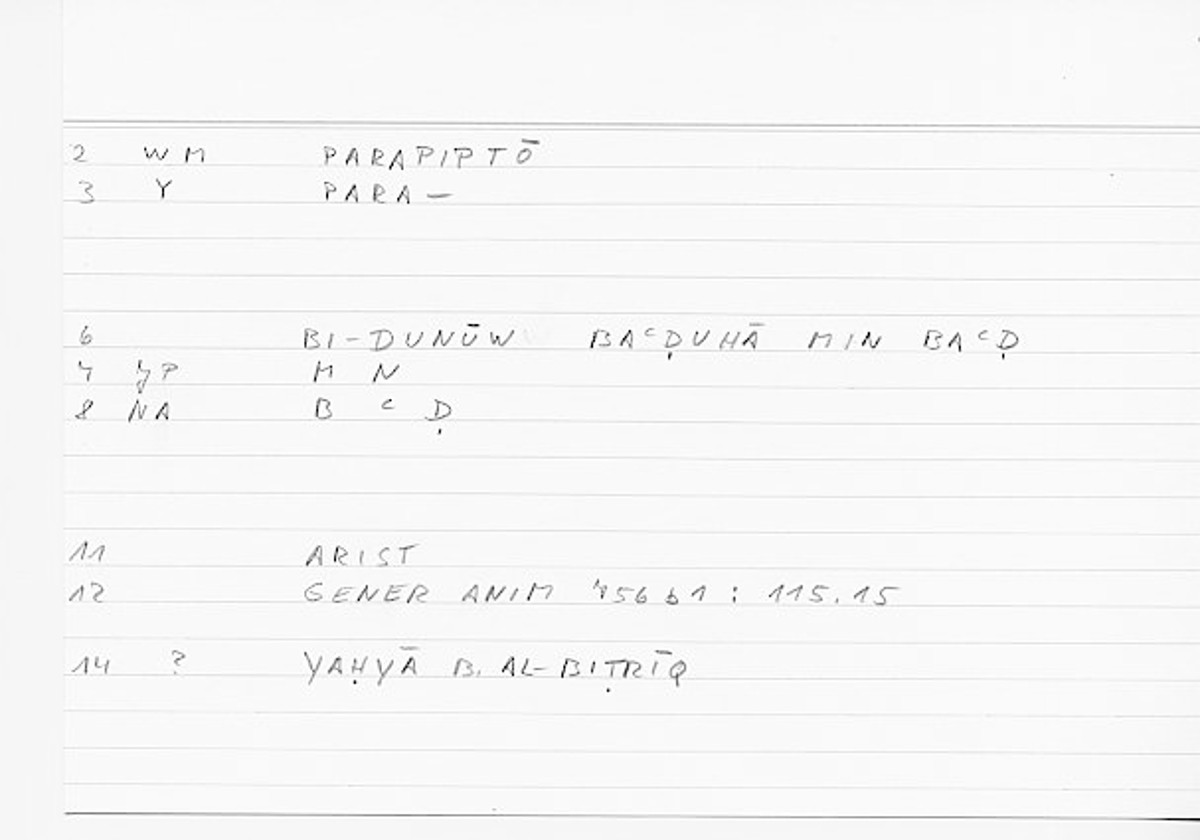 2 WM PARAPIPTŌ
3 Y PARA—
6 BI-DUNŪW BAᶜḌUHĀ MIN BAᶜḌ
7 JP M N
8 NA B ᶜ Ḍ
11 ARIST
12 GENER ANIM 756b1 : 115.15
14 ? YAḤYĀ B. AL-BIṬRĪQ